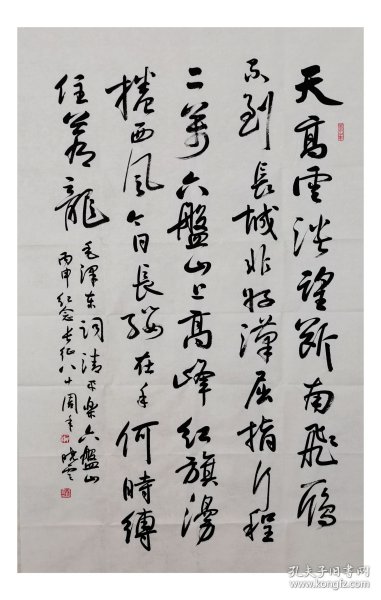 天高雲淡望断南飛雁
不到長城非好漢屈指行程
二萬六盤山上高峰紅旗漫
捲西風今日長纓在手何時縛
住蒼龍
毛澤东词清平樂六盤山
丙申纪念长征八十周年
孔夫子旧书网
kongfz.com